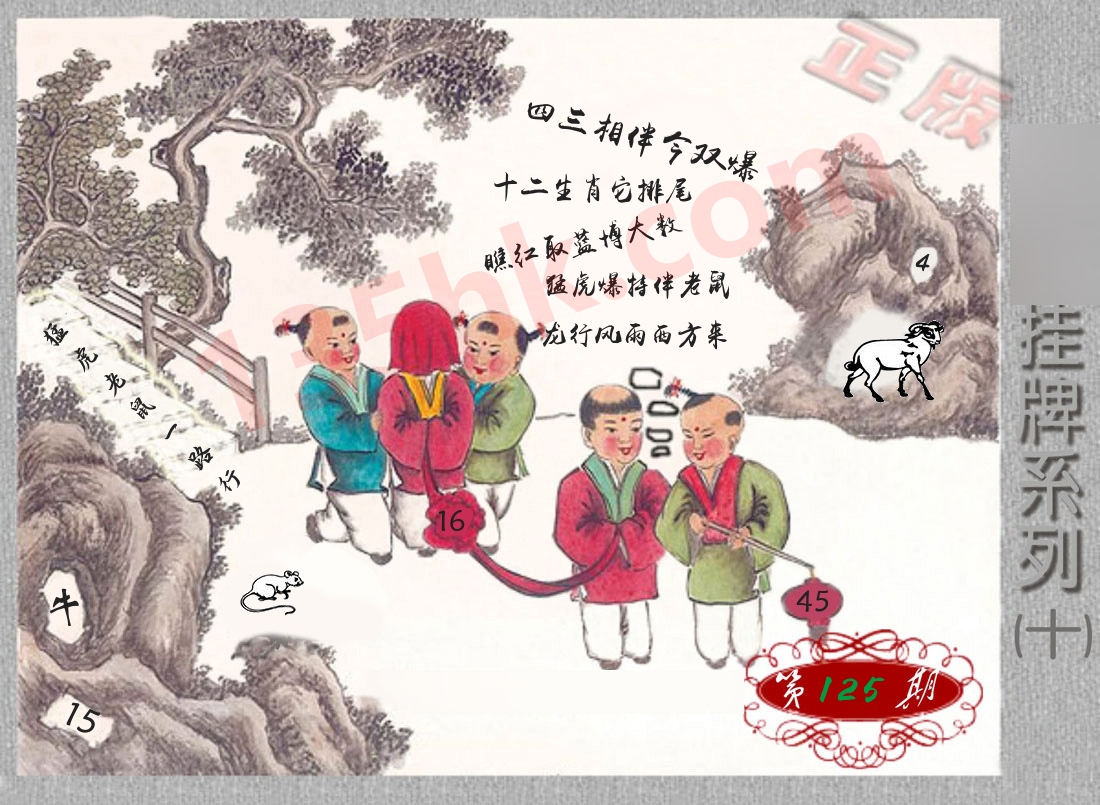 正版
四三相伴今双爆
十二生肖它排尾
瞧红取蓝博大数
猛虎爆特伴老鼠
龙行风雨西方来
4
猛虎老鼠一路行
16
45
牛
15
第125期
挂牌系列(十)
135hk.com